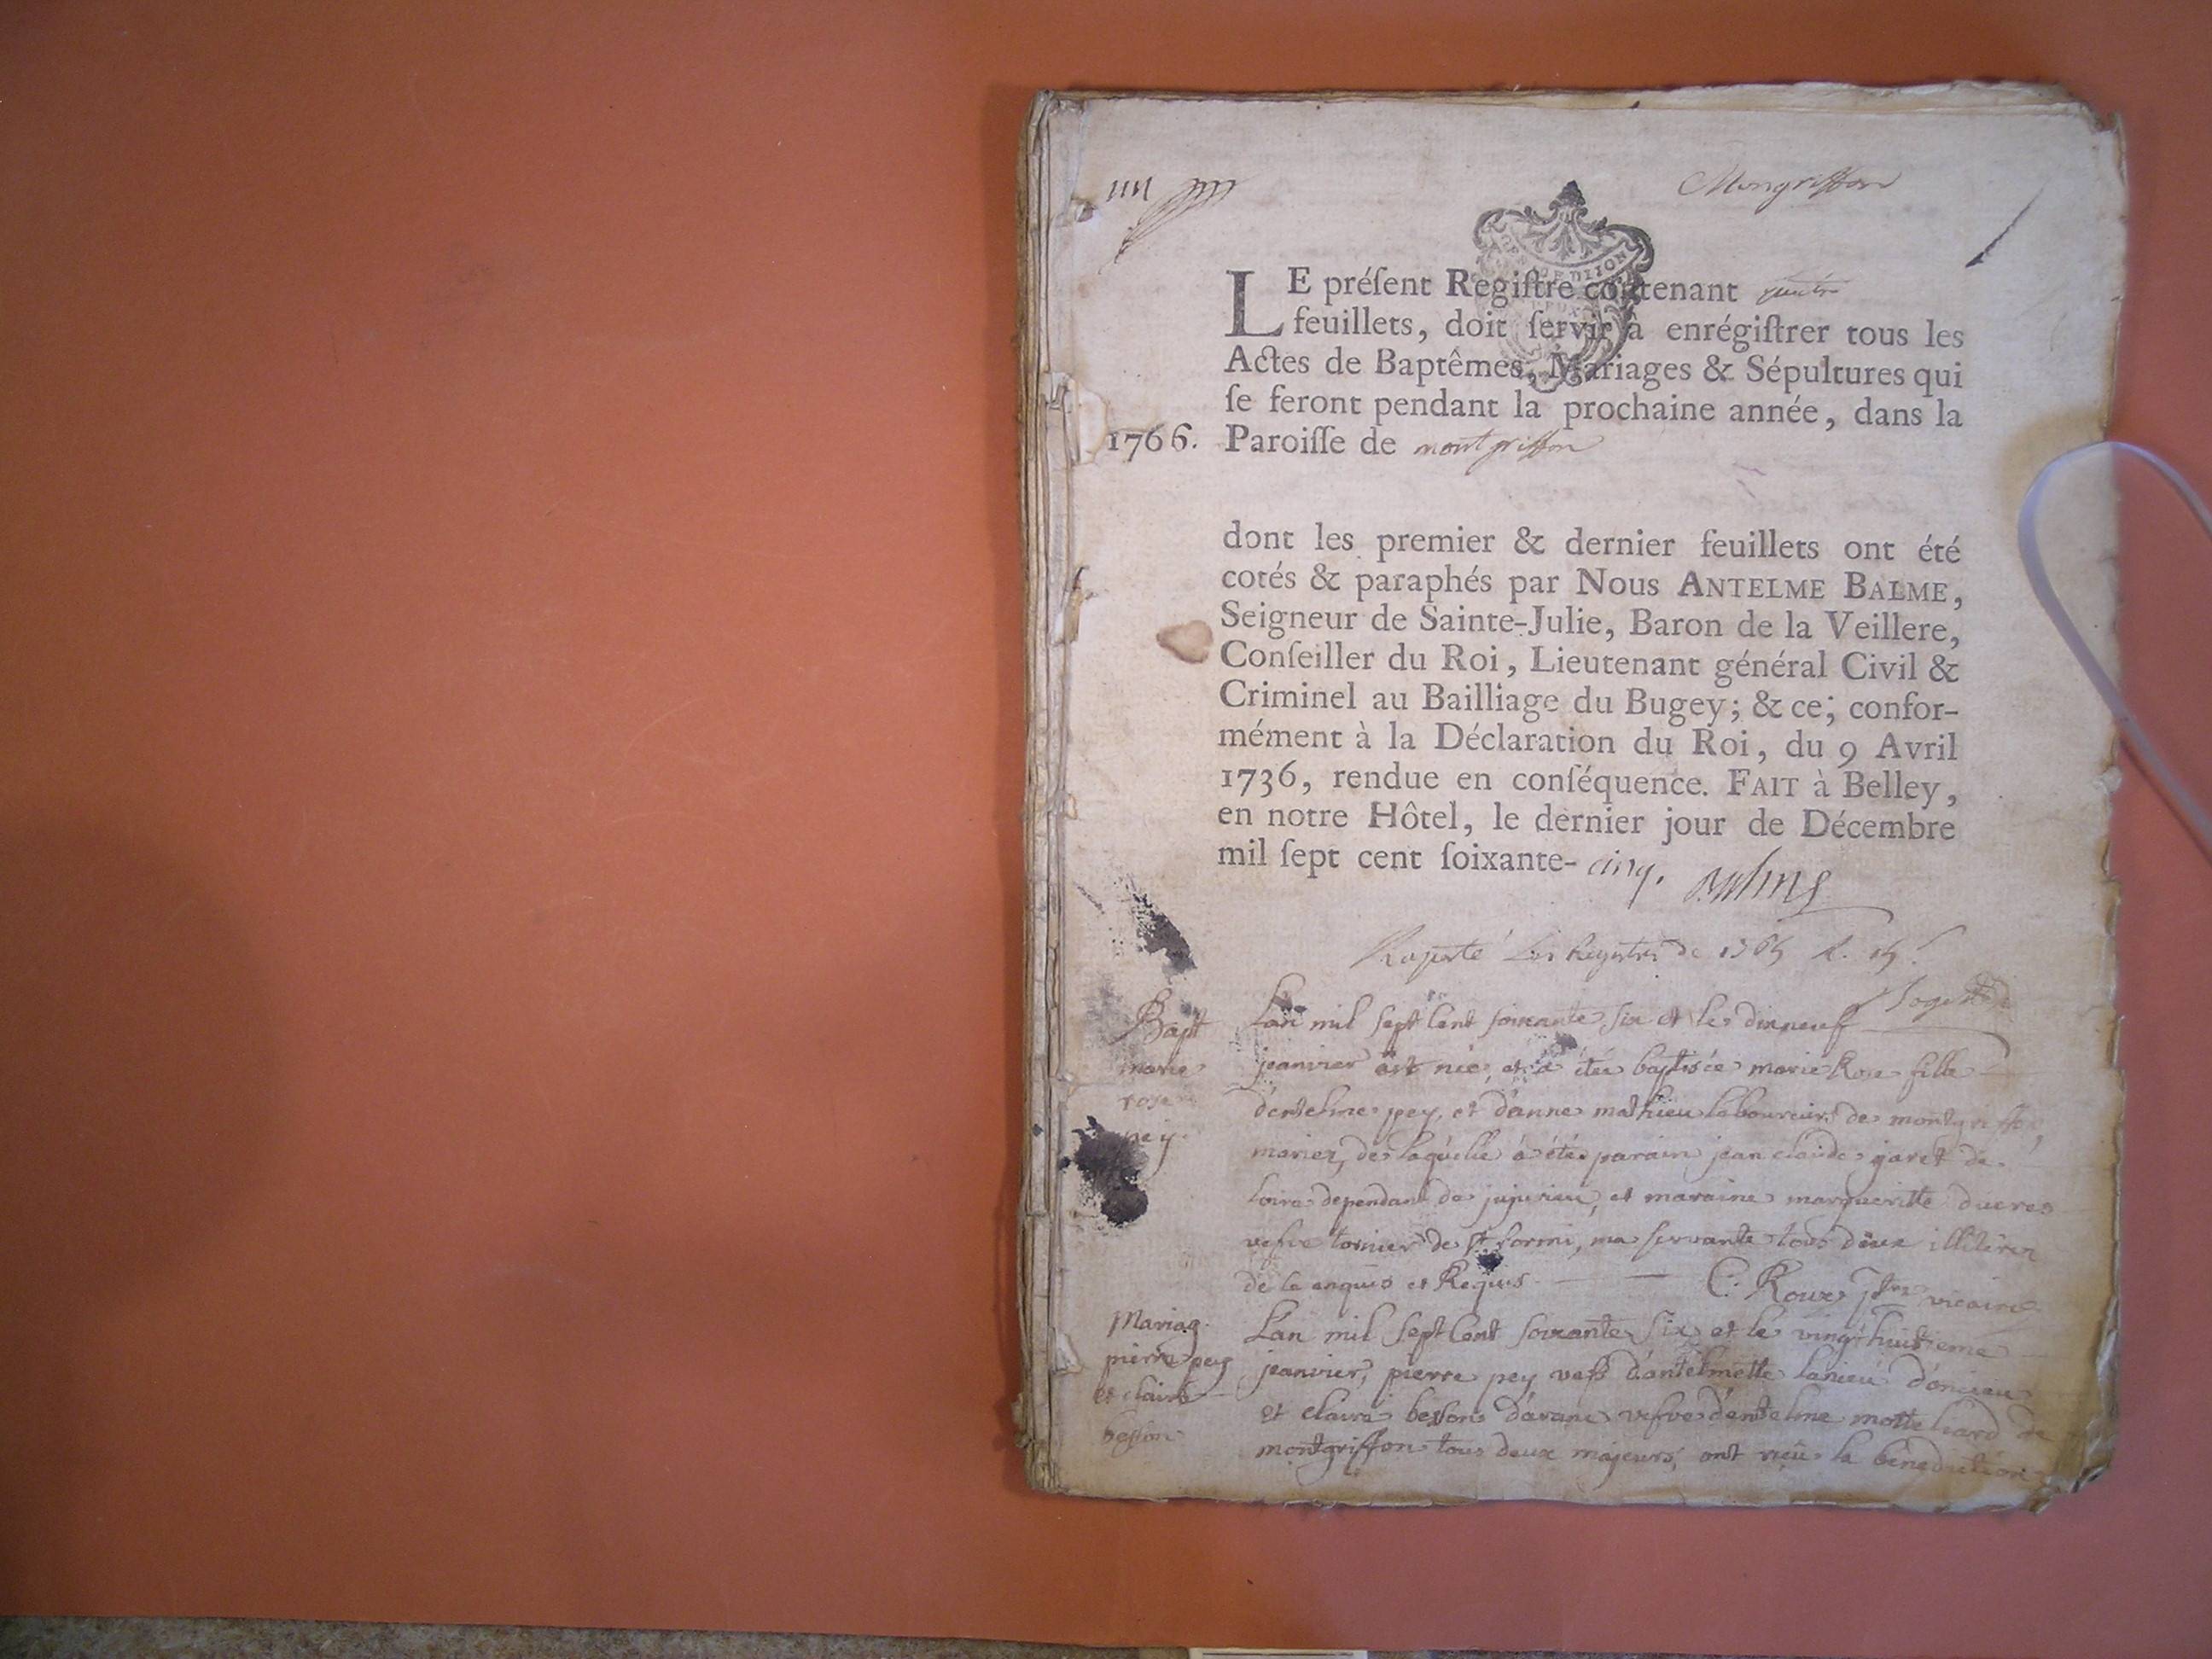 Mongriffon
LE préſent Regiſtre contenant quatre
feuillets, doit ſervir à enrégiſtrer tous les
Actes de Baptêmes, Mariages & Sépultures qui
ſe feront pendant la prochaine année, dans la
1766. Paroiſſe de montgriffon
dont les premier & dernier feuillets ont été
cotés & paraphés par Nous ANTELME BALME,
Seigneur de Sainte-Julie, Baron de la Veillere,
Conſeiller du Roi, Lieutenant général Civil &
Criminel au Bailliage du Bugey; & ce; confor-
mément à la Déclaration du Roi, du 9 Avril
1736, rendue en conſéquence. FAIT à Belley,
en notre Hôtel, le dernier jour de Décembre
mil ſept cent ſoixante-cinq. Balme
Raporté les Registres de 1765
Bapt
marie
rose
pey
Lan mil sept Cent soixante six et le dixneuf
jeanvier est née, et a étée baptisée marie Rose fille
d'entelme pey, et d'anne mathieu laboureurs de montgriffon,
mariez, de laquelle a étés parain jean claude garet de
loire dependant de jujurieu, et maraine margueritte
vefve tornier de st sormi, ma servante tous deux illiterez
de ce enquis et Requis C: Roux ptre vicaire
Mariag.
pierre pey
et claire
besson
L'an mil sept Cent soixante six et le vingthuitieme
jeanvier, pierre pey vefs d'antelmette lanieu d'oncieu
et claire besson d'aranc vefve d'entelme mollie liard de
montgriffon tous deux majeurs, ont reçû la bénédiction